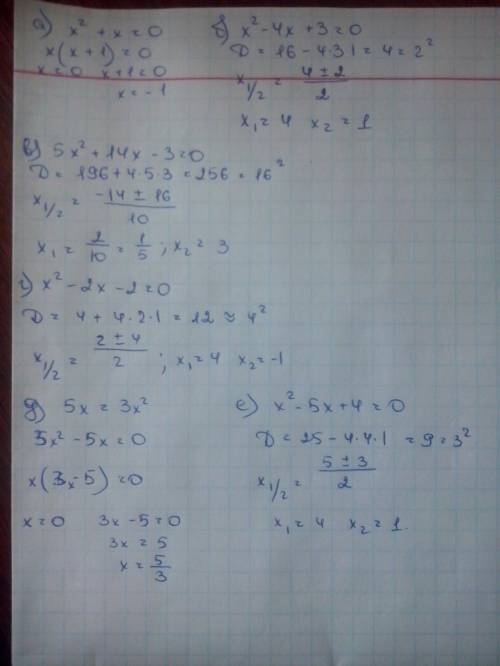 а) x² + x = 0
x(x+1) = 0
x = 0 x+1 = 0
x = -1
б) x² - 4x + 3 = 0
D = 16 - 4·3·1 = 4 = 2²
x₁/₂ = (4 ± 2)/2
x₁ = 4 x₂ = 1
в) 5x² + 14x - 3 = 0
D = 196 + 4·5·3 = 256 = 16²
x₁/₂ = (-14 ± 16)/10
x₁ = 2/10 = 1/5 ; x₂ = 3
г) x² - 2x - 2 = 0
D = 4 + 4·2·1 = 12 ≈ 4²
x₁/₂ = (2 ± 4)/2 ; x₁ = 4 x₂ = -1
д) 5x = 3x²
3x² - 5x = 0
x(3x-5) = 0
x = 0 3x - 5 = 0
3x = 5
x = 5/3
е) x² - 5x + 4 = 0
D = 25 - 4·4·1 = 9 = 3²
x₁/₂ = (5 ± 3)/2
x₁ = 4 x₂ = 1.